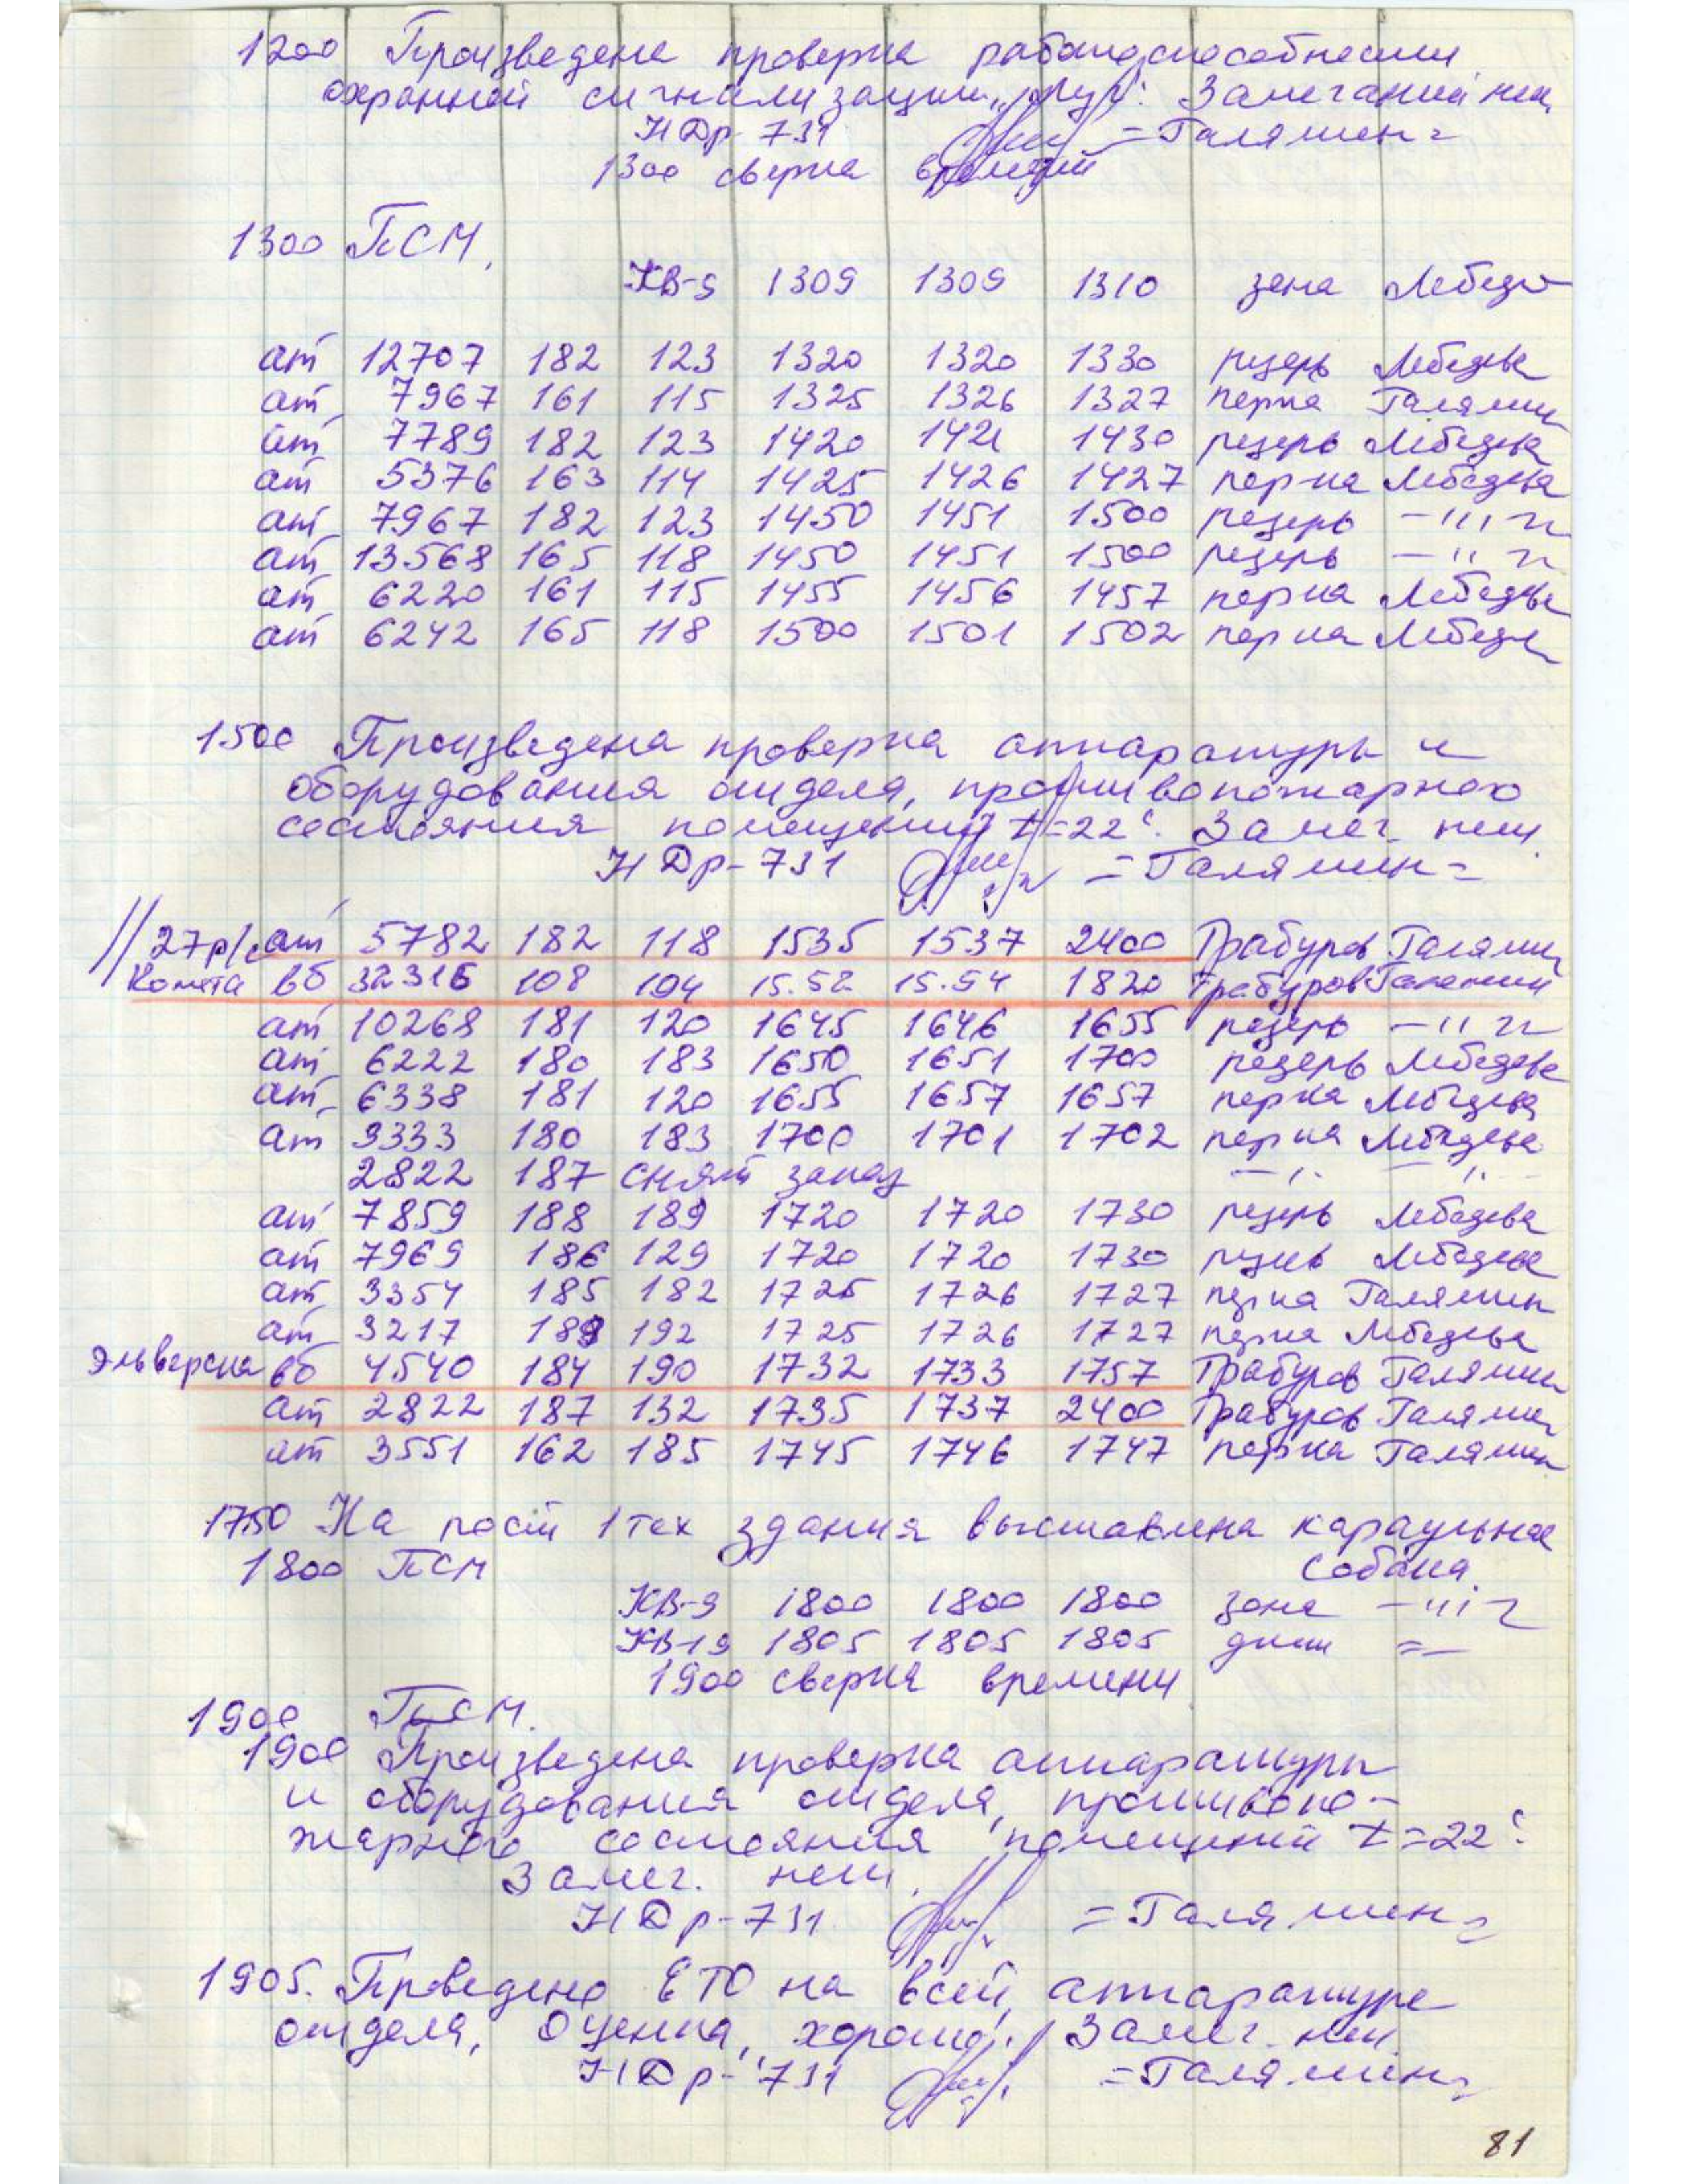 1200 Произведена проверка работоспособности
охранной сигнализации „Луч“. Замечаний нет,
НДр-731 =Галямин=
1300 сверка времени
1300 ПСМ.
КВ-9 1309 1309 1310 зона Лебедев
ат 12707 182 123 1320 1320 1330 резерв Лебедева
ат 7967 161 115 1325 1326 1327 перка Галямин
ат 7789 182 123 1420 1421 1430 резерв Лебедева
ат 5376 163 114 1425 1426 1427 перка Лебедева
ат 7967 182 123 1450 1451 1500 резерв —"—
ат 13568 165 118 1450 1451 1500 резерв —"—
ат 6220 161 115 1455 1456 1457 перка Лебедева
ат 6242 165 118 1500 1501 1502 перка Лебедева
1500 Произведена проверка аппаратуры и
оборудования отдела, противопожарного
состояния помещений t=22°. Замеч. нет
НДр-731 =Галямин=
27р/с ат 5782 182 118 1535 1537 2400 Грабуров Галямин
Комета вб 32316 108 104 15.52 15.54 1820 Грабуров Галямин
ат 10268 181 120 1645 1646 1655 резерв —"—
ат 6222 180 183 1650 1651 1700 резерв Лебедева
ат 6338 181 120 1655 1657 1657 перка Лебедева
ат 3333 180 183 1700 1701 1702 перка Лебедева
2822 187 снят заказ —"— —"—
ат 7859 188 189 1720 1720 1730 резерв Лебедева
ат 7969 186 129 1720 1720 1730 резерв Лебедева
ат 3354 185 182 1725 1726 1727 перка Галямин
ат 3217 189 192 1725 1726 1727 перка Лебедева
вб 4540 184 190 1732 1733 1757 Грабуров Галямин
ат 2822 187 132 1735 1737 2400 Грабуров Галямин
ат 3551 162 185 1745 1746 1747 перка Галямин
1750 На пост 1 тех здания выставлена караульная
собака.
1800 ПСМ
КВ-9 1800 1800 1800 зона —"—
КВ-19 1805 1805 1805 =—
1900 сверка времени
1900 ПСМ.
1900 Произведена проверка аппаратуры
и оборудования отдела, противопо-
жарного состояния помещений t=22°.
Замеч. нет.
НДр-731 =Галямин=
1905. Проведено ЕТО на всей аппаратуре
отдела, Оценка „хорошо“. Замеч. нет.
НДр-731 =Галямин=
81